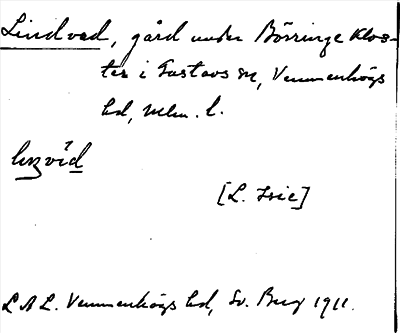 Lindvad, gård under Börringe Klos-
ter i Gustavs sn, Vemmenhögs
hd, Mlm. l.
[L. ]
L A L. Vemmenhögs hd, Sv. Bug 1911.